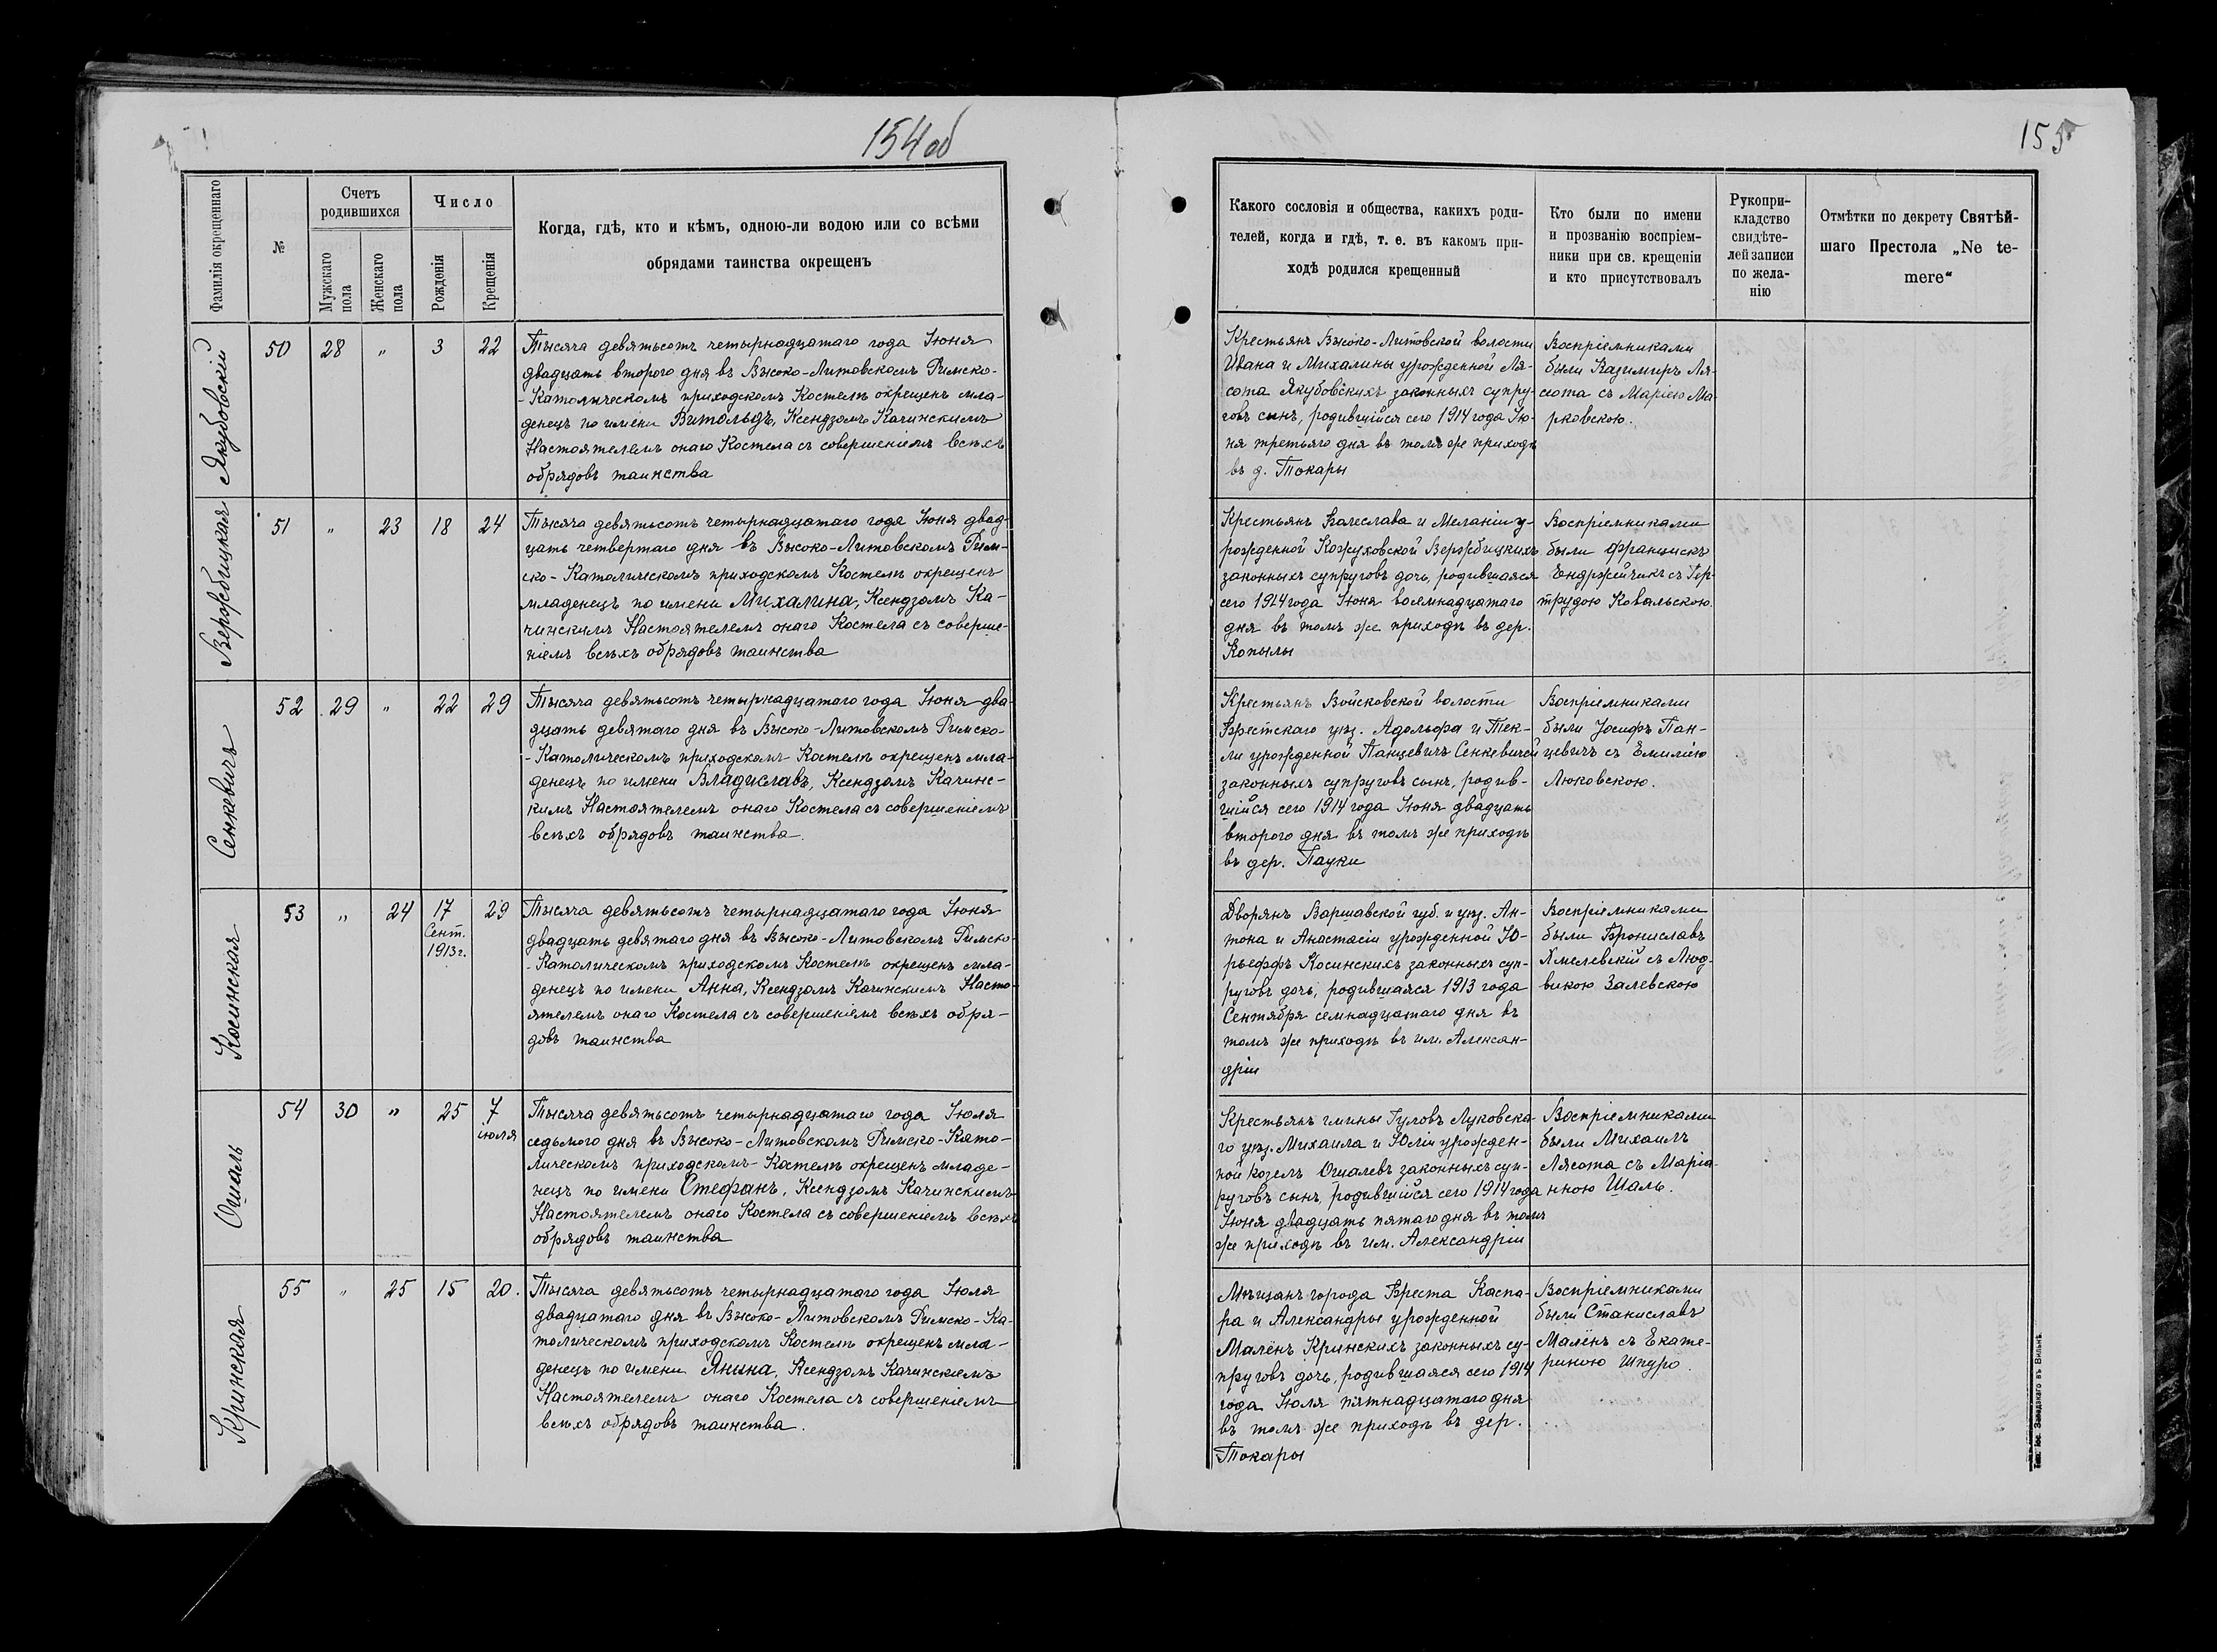 154об
Фамилія окрещеннаго
№
Счетъ
родившихся
Мужскаго
пола
Женскаго
пола
Число
Рожденія
Крещенія
Когда, гдѣ, кто и кѣмъ, одною-ли водою или со всѣми
обрядами таинства окрещенъ
Якубовскій
50
28
"
3
22
Тысяча девятьсотъ четырнадцатаго года Іюня
двадцать второго дня въ Высоко-Литовскомъ Римско-
-Католическомъ приходскомъ Костелѣ окрещенъ мла-
денецъ по имени Витольдъ, Ксендзомъ Качинскимъ
Настоятелемъ онаго Костела съ совершеніемъ всѣхъ
обрядовъ таинства
Вержбицкая
51
"
23
18
24
Тысяча девятьсотъ четырнадцатаго года Іюня двад-
цать четвертаго дня въ Высоко-Литовскомъ Рим-
ско-Католическомъ приходскомъ Костелѣ окрещенъ
младенецъ по имени Михалина, Ксендзомъ Ка-
чинскимъ Настоятелемъ онаго Костела съ соверше-
ніемъ всѣхъ обрядовъ таинства
Сенкевичъ
52
29
"
22
29
Тысяча девятьсотъ четырнадцатаго года Іюня два-
дцать девятаго дня въ Высоко-Литовскомъ Римско-
-Католическомъ приходскомъ Костелѣ окрещенъ мла-
денецъ по имени Владиславъ, Ксендзомъ Качинс-
кимъ Настоятелемъ онаго Костела съ совершеніемъ
всѣхъ обрядовъ таинства.
Косинская
53
"
24
17
Сент.
1913 г.
29
Тысяча девятьсотъ четырнадцатаго года Іюня
двадцать девятаго дня въ Высоко-Литовскомъ Римско-
-Католическомъ приходскомъ Костелѣ окрещенъ мла-
денецъ по имени Анна, Ксендзомъ Качинскимъ Насто-
ятелемъ онаго Костела съ совершеніемъ всѣхъ обря-
довъ таинства
Ошаль
54
30
"
25
7
іюля
Тысяча девятьсотъ четырнадцатаго года Іюля
седьмого дня въ Высоко-Литовскомъ Римско-Като-
лическомъ приходскомъ Костелѣ окрещенъ младе-
нецъ по имени Стефанъ, Ксендзомъ Качинскимъ
Настоятелемъ онаго Костела съ совершеніемъ всѣхъ
обрядовъ таинства
Кринская
55
"
25
15
20.
Тысяча девятьсотъ четырнадцатаго года Іюля
двадцатаго дня въ Высоко-Литовскомъ Римско-Ка-
толическомъ приходскомъ Костелѣ окрещенъ мла-
денецъ по имени Янина, Ксендзомъ Качинскимъ
Настоятелемъ онаго Костела съ совершеніемъ
всѣхъ обрядовъ таинства.
155
Какого сословія и общества, какихъ роди-
телей, когда и гдѣ, т. е. въ какомъ при-
ходѣ родился крещенный
Кто были по имени
и прозванію воспріем-
ники при св. крещеніи
и кто присутствовалъ
Рукопри-
кладство
свидѣте-
лей записи
по жела-
нію
Отмѣтки по декрету Святѣй-
шаго Престола „Ne te-
mere“
Крестьянъ Высоко-Литовской волости
Ивана и Михалины урожденной Ля-
сота Якубовскихъ законныхъ супру-
говъ сынъ, родившійся сего 1914 года Ію-
ня третьяго дня въ томъ же приходѣ
въ д. Токары
Воспріемниками
были Казимиръ Ля-
сота съ Маріею Ма-
рковскою.
Крестьянъ Вачеслава и Меланіи у-
рожденной Кожуховской Вержбицкихъ
законныхъ супруговъ дочь, родившаяся
сего 1914 года Іюня восемнадцатаго
дня въ томъ же приходѣ въ дер.
Копылы
Воспріемниками
были Францискъ
Ендржейчикъ съ Гер-
трудою Ковальскою.
Крестьянъ Войсковской волости
Брестскаго уѣз. Адольфа и Тек-
ли урожденной Панцевичъ Сенкевичей
законныхъ супруговъ сынъ, родив-
шійся сего 1914 года Іюня двадцать
второго дня въ томъ же приходѣ
въ дер. Пауки
Воспріемниками
были Іосифъ Пан-
цевичъ съ Емиліею
Люковскою.
Дворянъ Варшавской губ. и уѣз. Ан-
тона и Анастасіи урожденной Ю-
рьеффъ Косинскихъ законныхъ суп-
руговъ дочь, родившаяся 1913 года
Сентября семнадцатаго дня въ
томъ же приходѣ въ им. Алексан-
дріи
Воспріемниками
были Брониславъ
Хмелевскій съ Люд-
викою Залевскою
Крестьянъ гмины Гуловъ Луковска-
го уѣз. Михаила и Юліи урожден-
ной Козелъ Ошалевъ законныхъ суп-
руговъ сынъ, родившійся сего 1914 года
Іюня двадцать пятаго дня въ томъ
же приходѣ въ им. Александріи
Воспріемниками
были Михаилъ
Лясота съ Маріа-
нною Шаль.
Мѣщанъ города Бреста Каспа-
ра и Александры урожденной
Малёнъ Кринскихъ законныхъ су-
пруговъ дочь, родившаяся сего 1914
года Іюля пятнадцатаго дня
въ томъ же приходѣ въ дер.
Токары
Воспріемниками
были Станиславъ
Малёнъ съ Екате-
риною Шпуро.
Тип. Іос. Завадзкаго въ Вильнѣ.